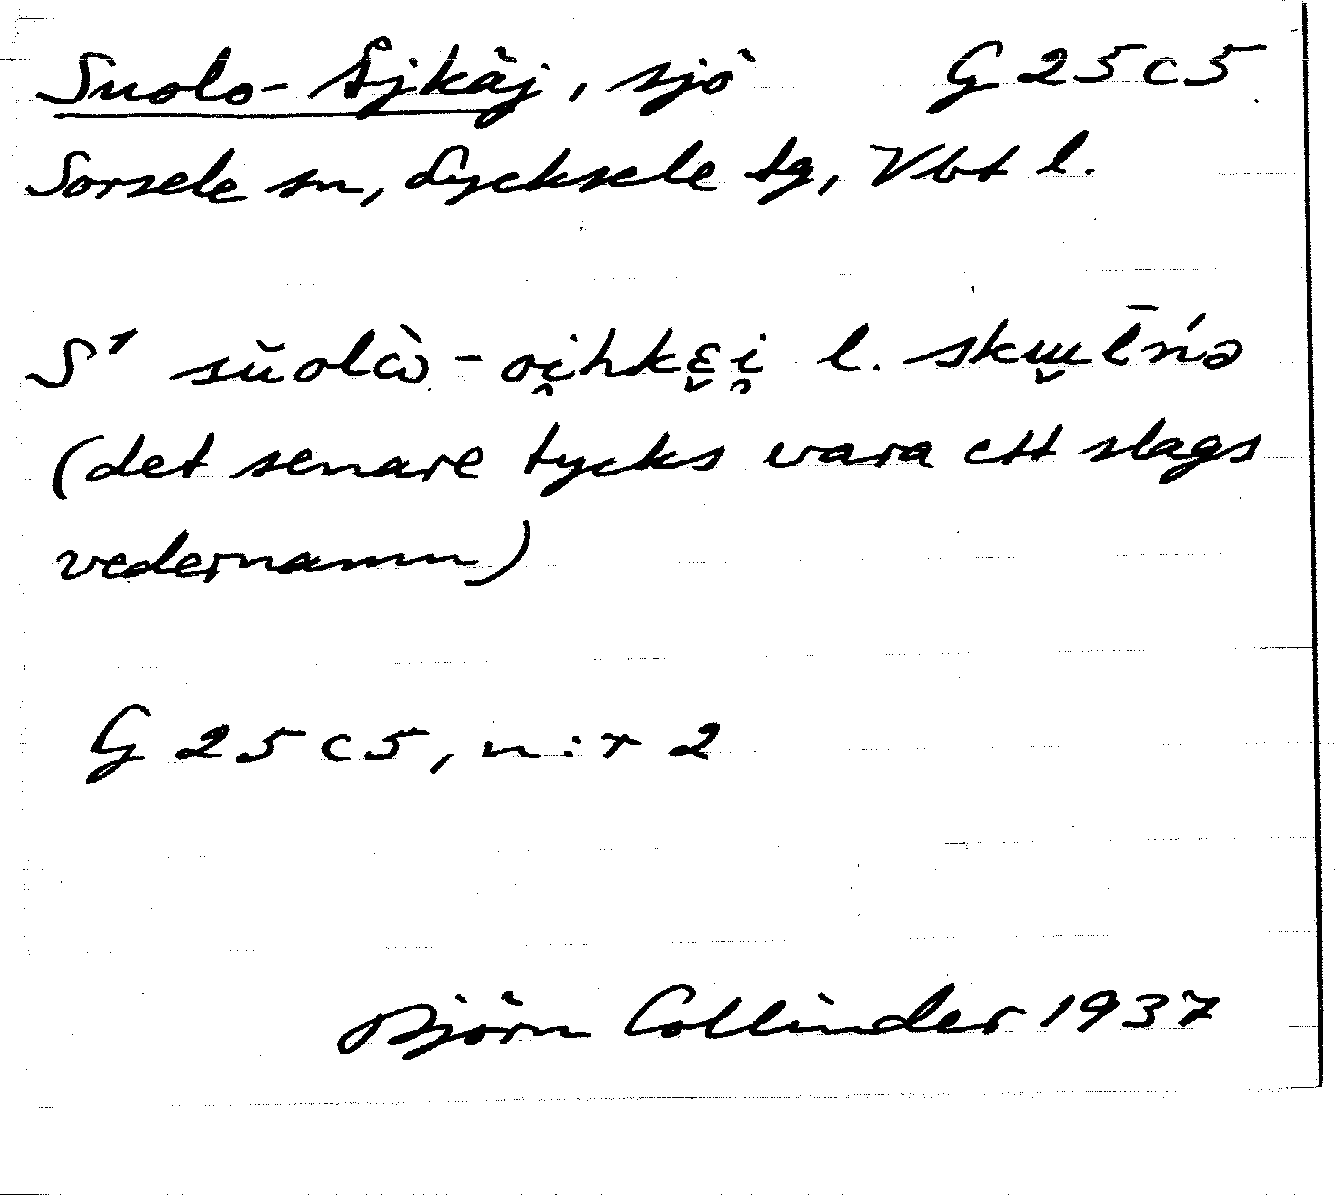 Suolo-Ajkaj, sjö G 25 c 5
Sorsele sn, Lycksele tg, Vbt l.
S¹ l.
(det senare tycks vara ett slags
vedernamn)
G 25 c 5, n:r 2
Björn Collinder 1937